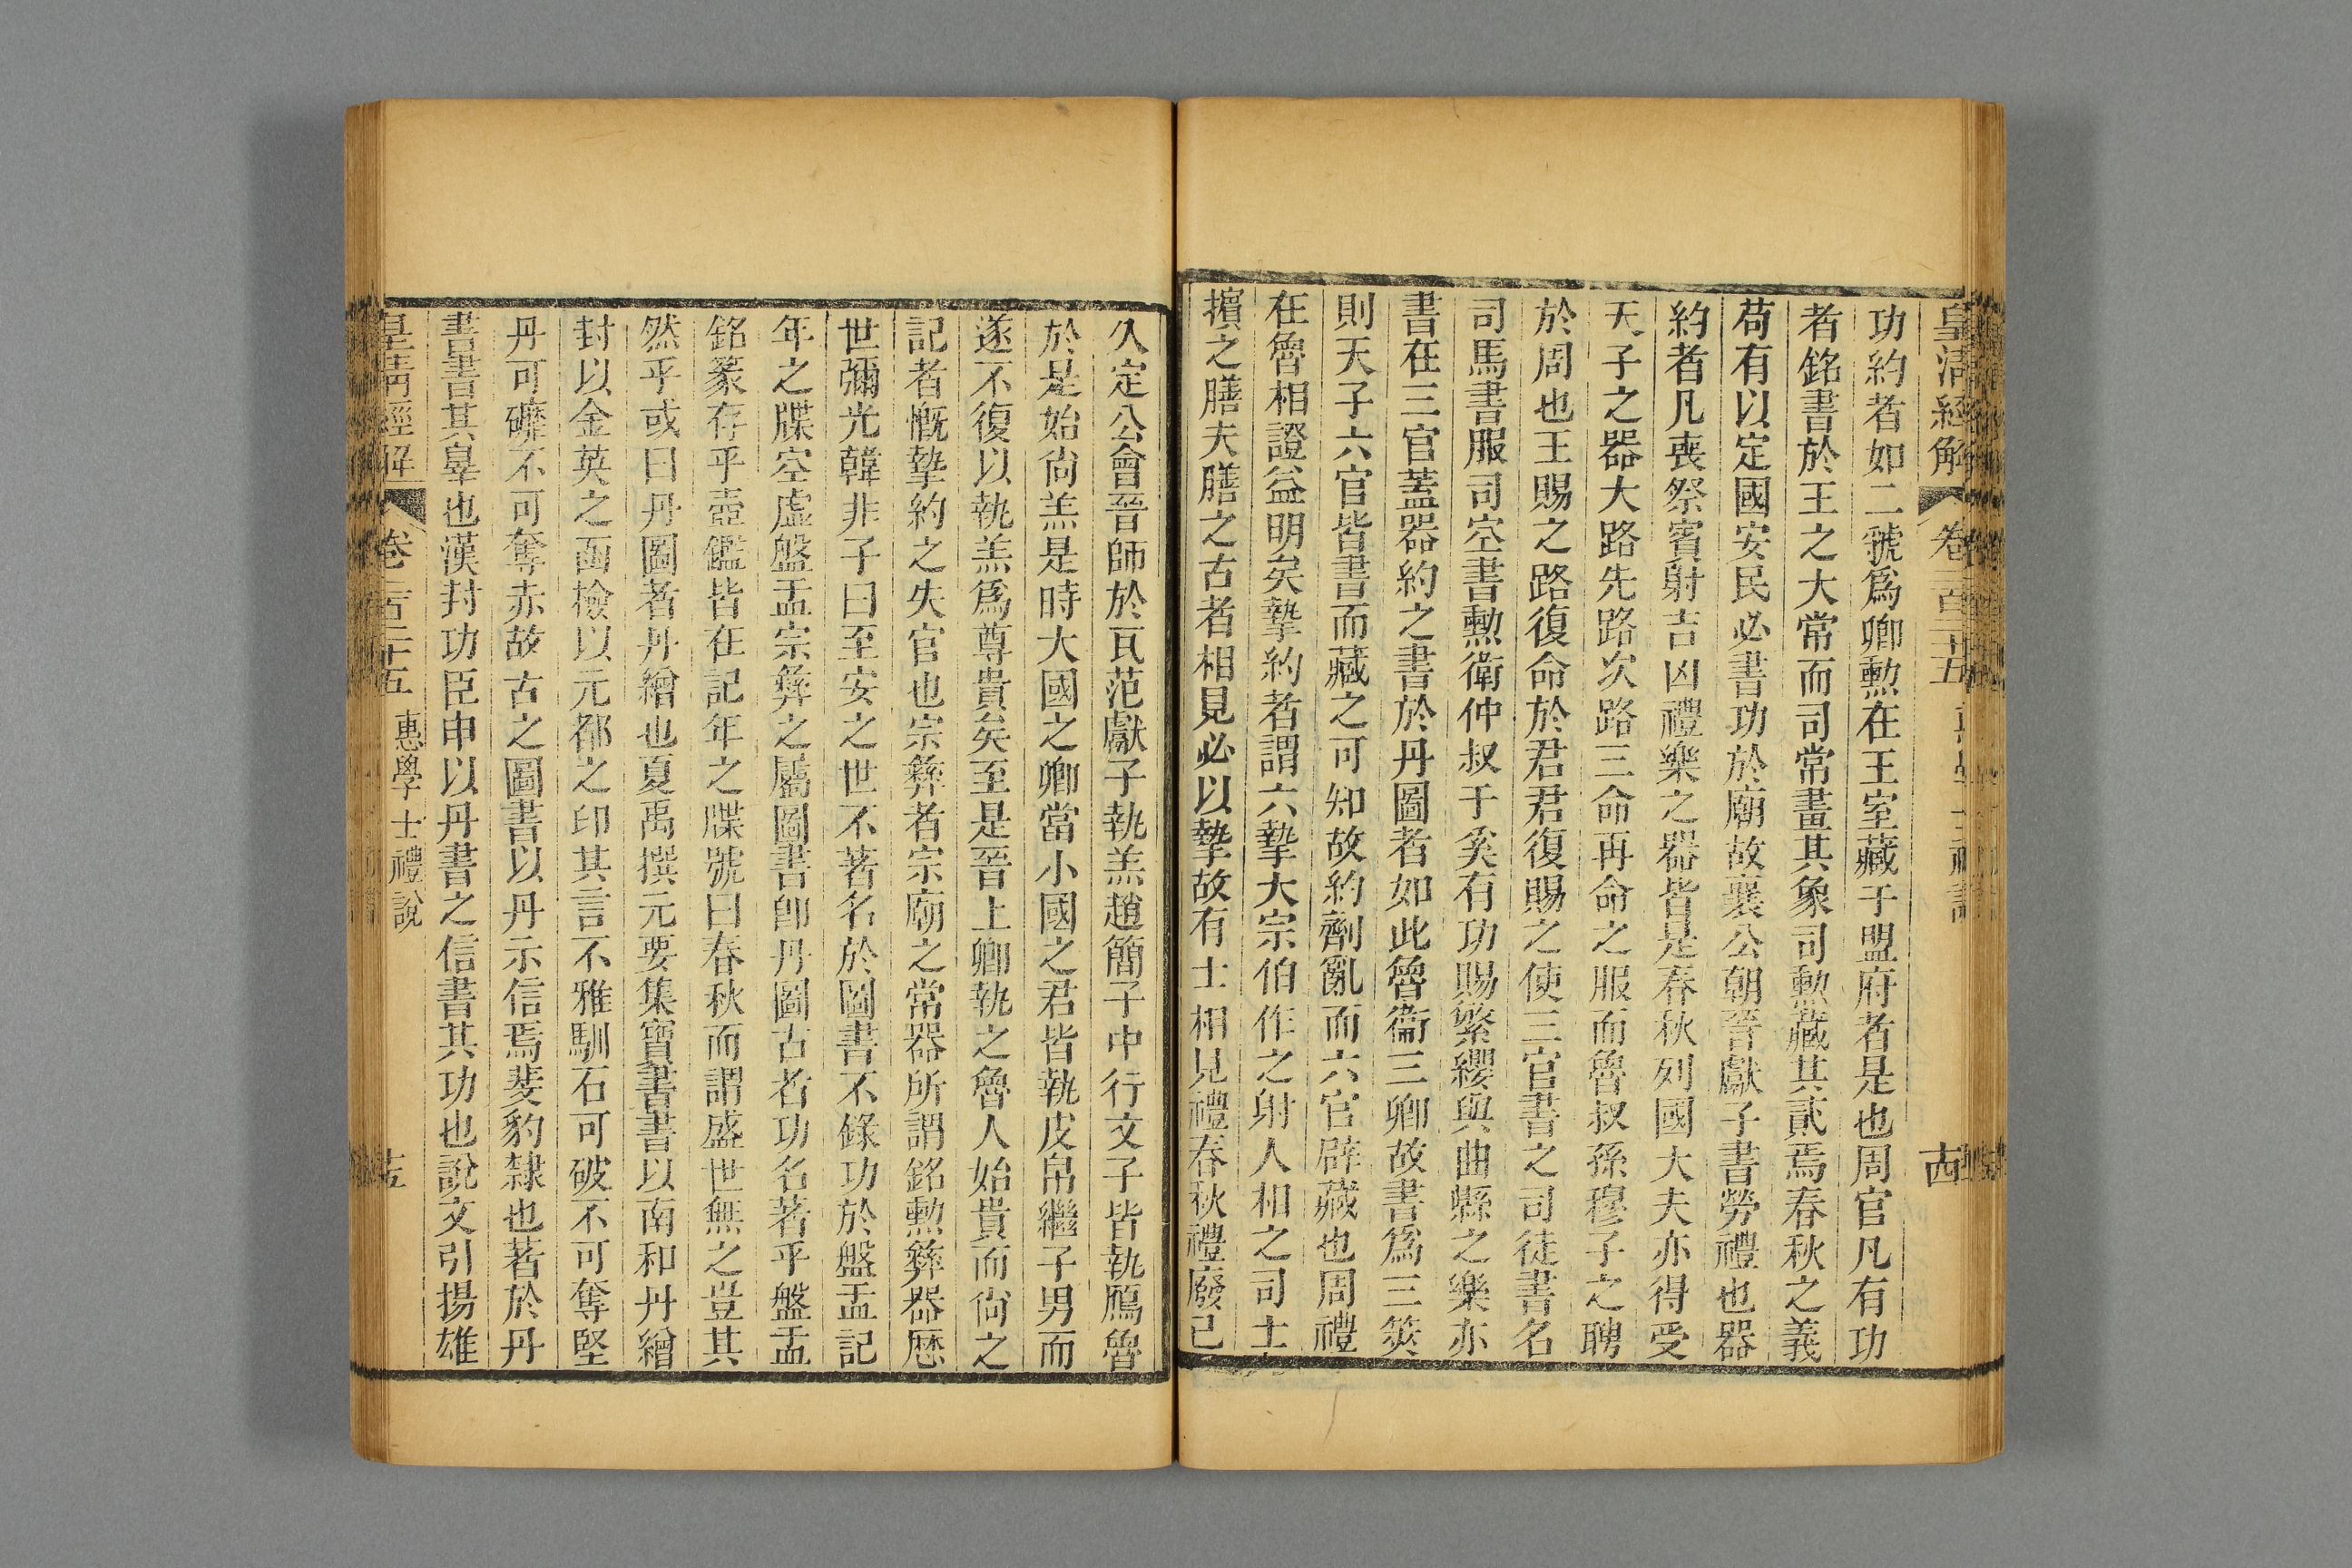 皇清經解 卷二百二十五 士禮說 十四
功約者如二虢爲卿勲在王室藏于盟府者是也周官凡有功
者銘書於王之大常而司常畫其象司勲藏其貳焉春秋之義
苟有以定國安民必書功於廟故襄公朝晉獻子書勞禮也器
約者凡喪祭賓射吉凶禮樂之器皆是春秋列國大夫亦得受
天子之器大路先路次路三命再命之服而魯叔孫穆子之聘
於周也王賜之路復命於君君復賜之使三官書之司徒書名
司馬書服司空書勲衛仲叔于奚有功賜繁纓與曲縣之樂亦
書在三官蓋器約之書於丹圖者如此魯衞三卿故書爲三筴
則天子六官皆書而藏之可知故約劑亂而六官辟藏也周禮
在魯相證益明矣摯約者謂六摯大宗伯作之射人相之司士
擯之膳夫膳之古者相見必以摯故有士相見禮春秋禮廢已
久定公會晉師於瓦范獻子執羔趙簡子中行文子皆執鴈魯
於是始尙羔是時大國之卿當小國之君皆執皮帛繼子男而
遂不復以執羔爲尊貴矣至是晉上卿執之魯人始貴而尙之
記者慨摯約之失官也宗彝者宗廟之常器所謂銘勲彝器歷
世彌光韓非子曰至安之世不著名於圖書不錄功於盤盂記
年之牒空虛盤盂宗彝之屬圖書卽丹圖古者功名著乎盤盂
銘篆存乎壺鑑皆在記年之牒號曰春秋而謂盛世無之豈其
然乎或曰丹圖者丹繪也夏禹撰元要集寶書書以南和丹繒
封以金英之函檢以元都之印其言不雅馴石可破不可奪堅
丹可礳不可奪赤故古之圖書以丹示信焉斐豹隸也著於丹
書書其辠也漢封功臣申以丹書之信書其功也說文引揚雄
皇清經解 卷二百二十五 惠學士禮說 十五